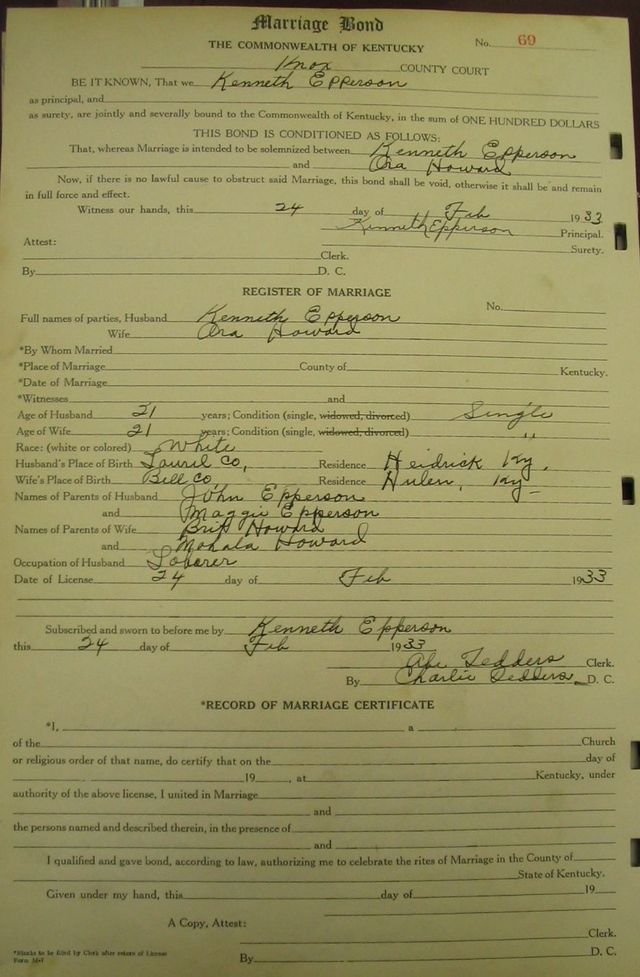 Marriage Bond
THE COMMONWEALTH OF KENTUCKY No. 69
Knox COUNTY COURT
BE IT KNOWN, That we Kenneth Epperson
as principal, and
as surety, are jointly and severally bound to the Commonwealth of Kentucky, in the sum of ONE HUNDRED DOLLARS
THIS BOND IS CONDITIONED AS FOLLOWS:
That, whereas Marriage is intended to be solemnized between Kenneth Epperson
and Ora Howard
Now, if there is no lawful cause to obstruct said Marriage, this bond shall be void, otherwise it shall be and remain
in full force and effect.
Witness our hands, this 24 day of Feb 1933
Kenneth Epperson Principal.
Attest: Surety.
Clerk.
By D. C.
REGISTER OF MARRIAGE
No.
Full names of parties, Husband Kenneth Epperson
Wife Ora Howard
*By Whom Married
*Place of Marriage County of Kentucky.
*Date of Marriage
*Witnesses and
Age of Husband 21 years; Condition (single, widowed, divorced) Single
Age of Wife 21 years; Condition (single, widowed, divorced) "
Race: (white or colored) White
Husband's Place of Birth Lauril Co, Residence Heidrick Ky,
Wife's Place of Birth Bell Co, Residence Hulen, Ky
Names of Parents of Husband John Epperson
and Maggie Epperson
Names of Parents of Wife Howard
and Mahala Howard
Occupation of Husband Loberer
Date of License 24 day of Feb 1933
Subscribed and sworn to before me by Kenneth Epperson
this 24 day of Feb 1933
Abe Tedders Clerk.
By Charlie Tedders D. C.
*RECORD OF MARRIAGE CERTIFICATE
*I, a
of the Church
or religious order of that name, do certify that on the day of
19 , at Kentucky, under
authority of the above license, I united in Marriage
and
the persons named and described therein, in the presence of
and
I qualified and gave bond, according to law, authorizing me to celebrate the rites of Marriage in the County of
State of Kentucky.
Given under my hand, this day of 19
A Copy, Attest:
Clerk.
*Blanks to be filled by Clerk after return of License
By D. C.